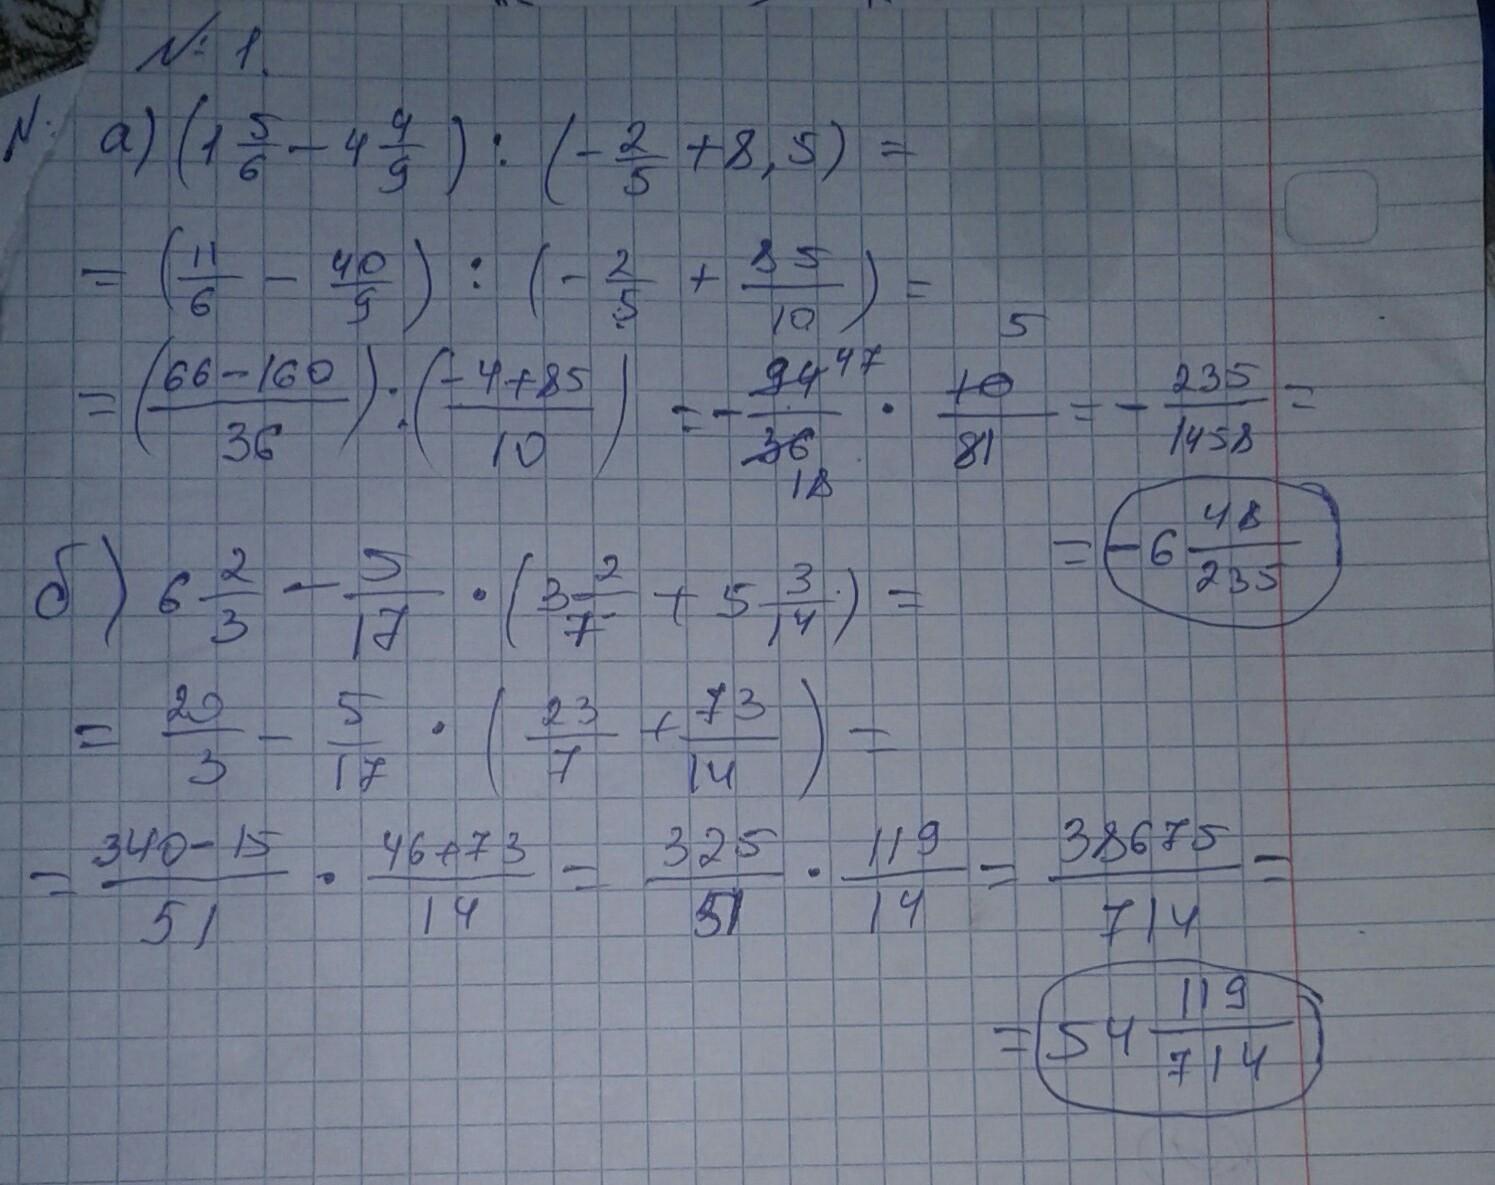 № 1.
N:
а) (1 5/6 - 4 4/9) : (- 2/5 + 8,5) =
= (11/6 - 40/9) : (- 2/5 + 85/10) =
= (66-160/36) : (-4+85/10) = - 94 47/36 18 · 10 5/81 = - 235/1458 =
= -6 48/235
б) 6 2/3 - 5/17 · (3 2/7 + 5 3/14) =
= 20/3 - 5/17 · (23/7 + 73/14) =
= 340-15/51 · 46+73/14 = 325/51 · 119/14 = 38675/714 =
= 54 119/714